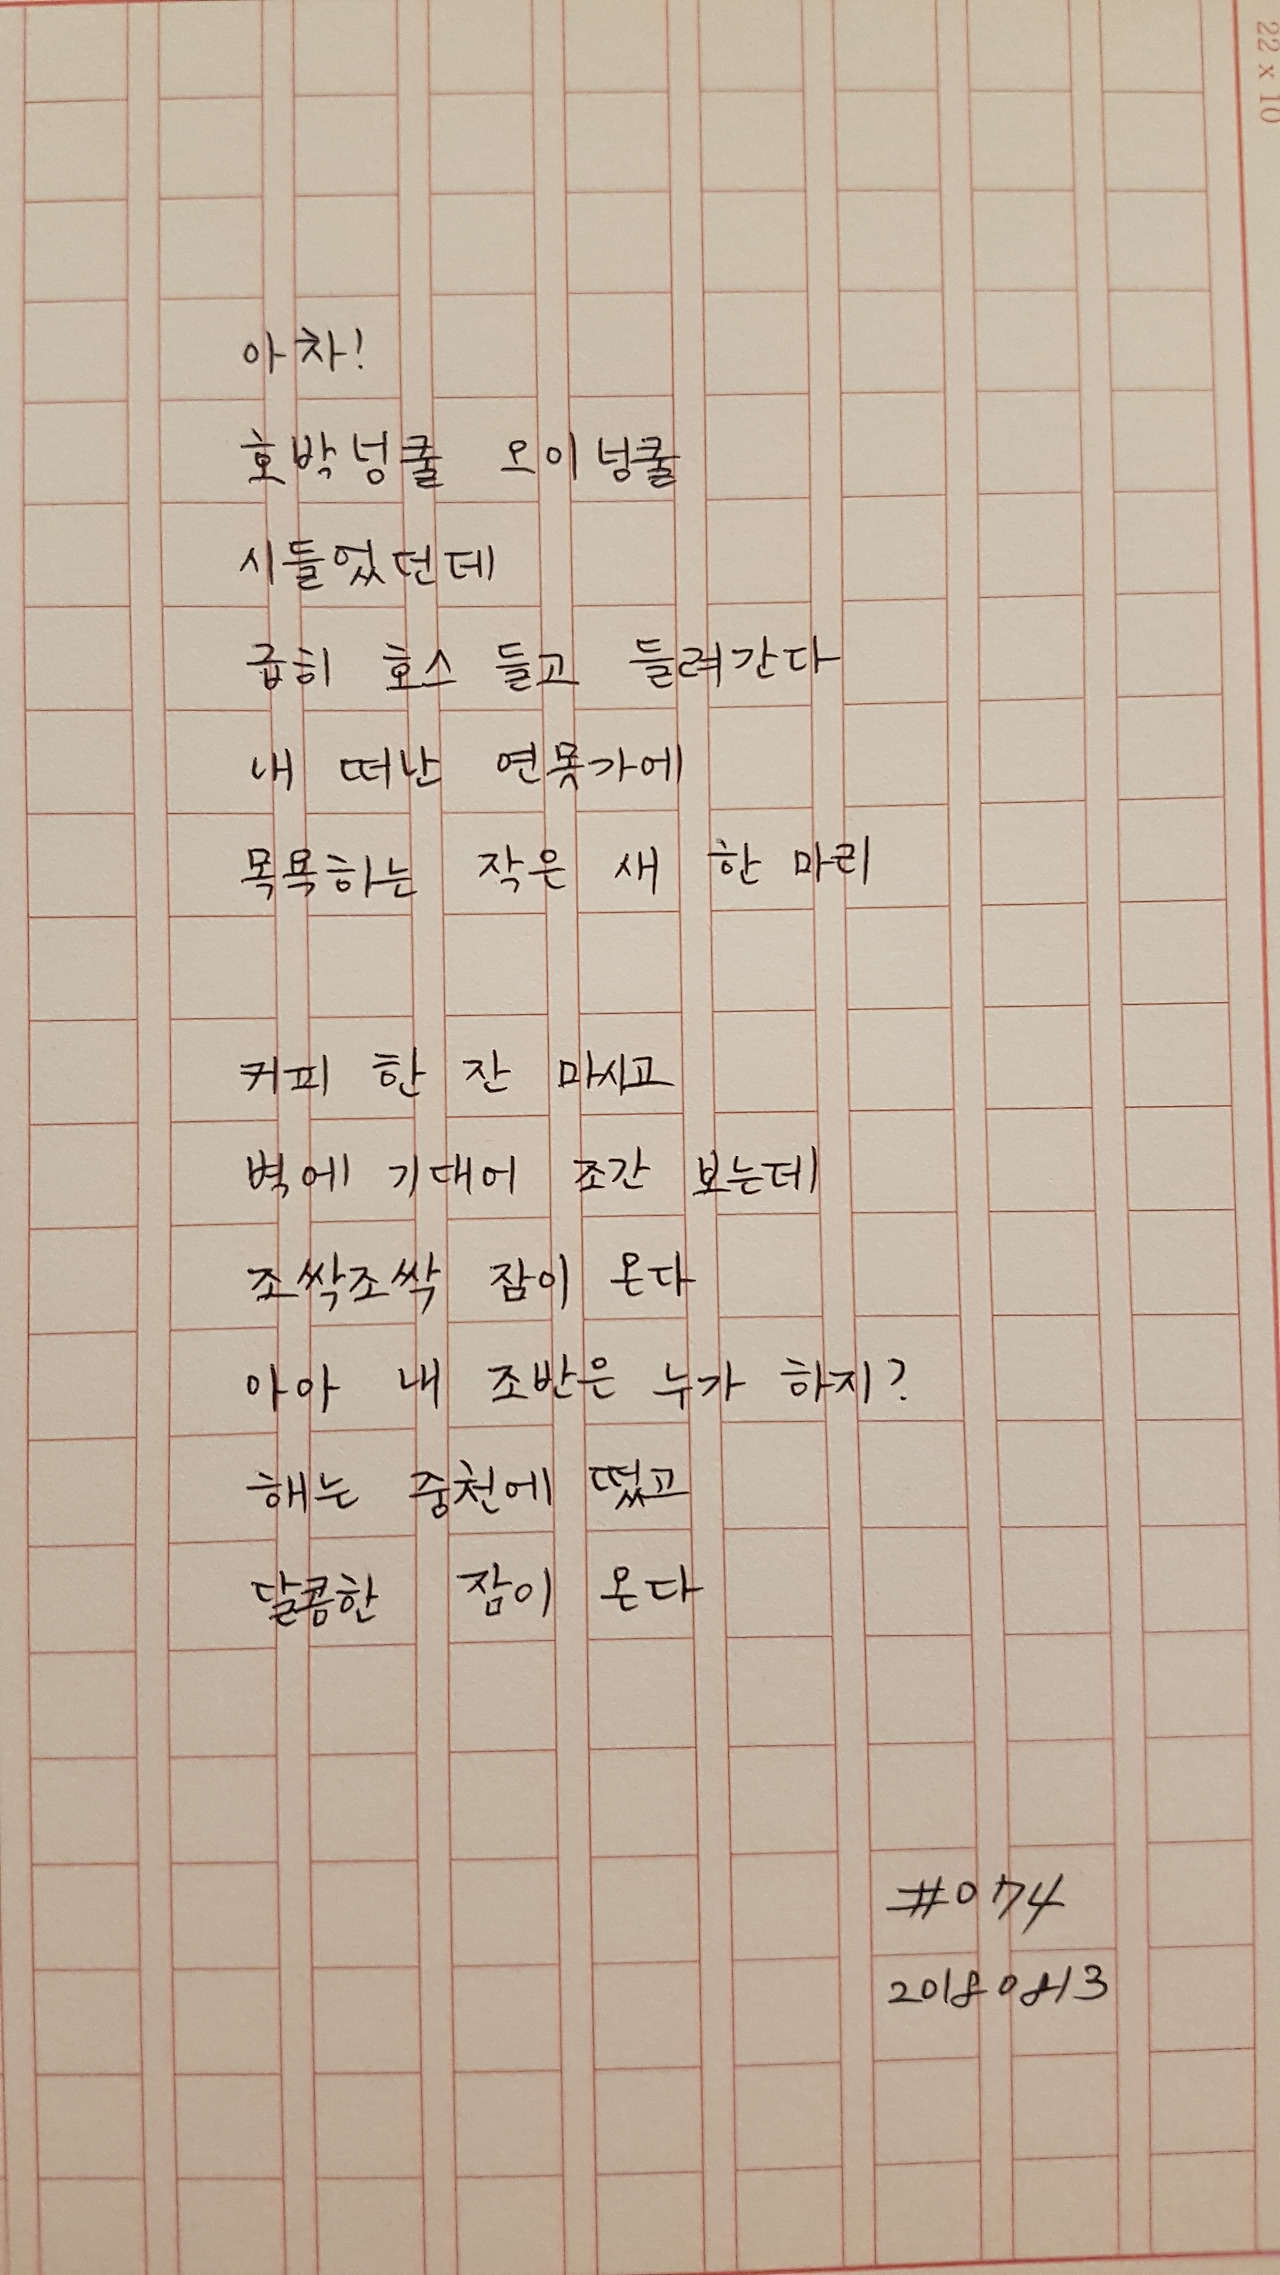 22 x 10
아차!
호박넝쿨 오이넝쿨
시들었던데
급히 호스 들고 들려간다
내 떠난 연못가에
목욕하는 작은 새 한 마리
커피 한 잔 마시고
벽에 기대어 조간 보는데
조싹조싹 잠이 온다
아아 내 조반은 누가 하지?
해는 중천에 떴고
달콤한 잠이 온다
#074
20180813